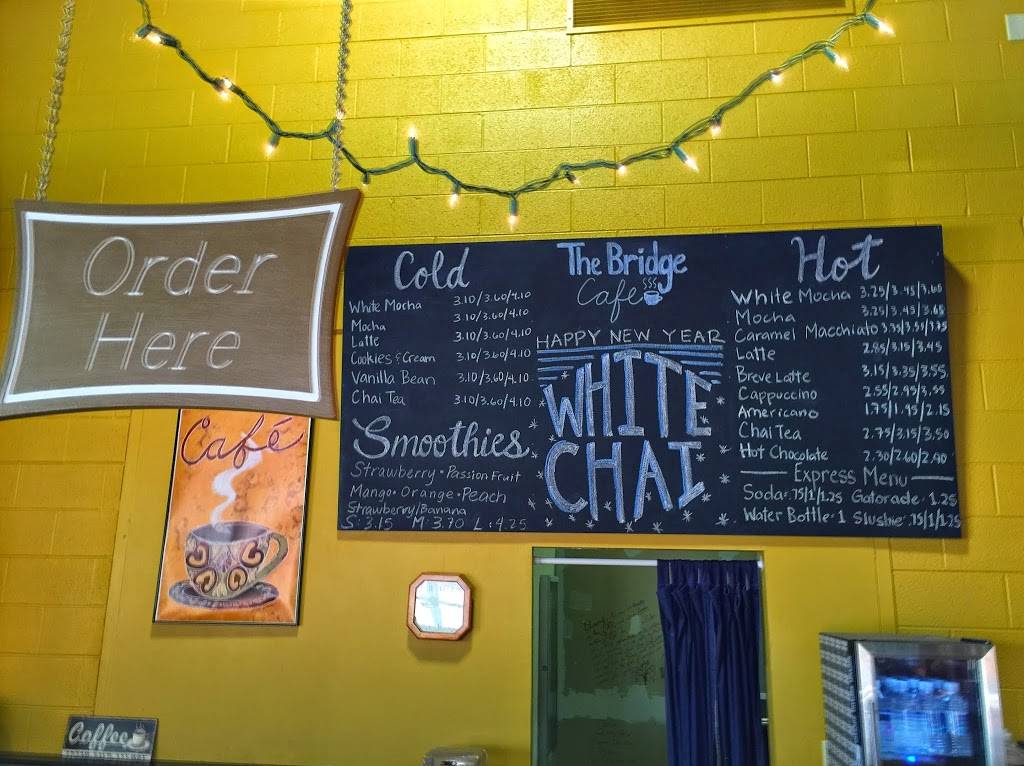 Order
Here
Café
Coffee
Cold
White Mocha 3.10/3.60/4.10
Mocha 3.10/3.60/4.10
Latte 3.10/3.60/4.10
Cookies & Cream 3.10/3.60/4.10
Vanilla Bean 3.10/3.60/4.10
Chai Tea 3.10/3.60/4.10
Smoothies
Strawberry • Passion Fruit
Mango • Orange • Peach
Strawberry/Banana
S: 3.15 M 3.70 L: 4.25
The Bridge
Cafe
HAPPY NEW YEAR
WHITE
CHAI
Hot
White Mocha 3.25/3.45/3.65
Mocha 3.25/3.45/3.65
Caramel Macchiato
Latte 2.85/3.15/3.45
Breve Latte 3.15/3.35/3.55
Cappuccino 2.55/2.95/3.55
Americano 1.75/1.95/2.15
Chai Tea 2.75/3.15/3.50
Hot Chocolate 2.30/2.60/2.90
Express Menu
Soda • .75/1/1.25 Gatorade • 1.25
Water Bottle • 1 Slushie • .75/1/1.25